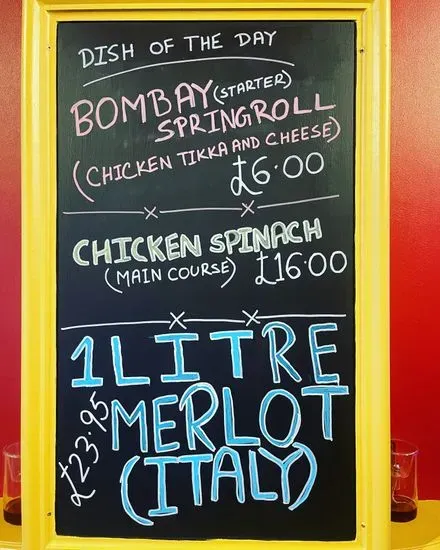 DISH OF THE DAY
BOMBAY (STARTER)
SPRINGROLL
(CHICKEN TIKKA AND CHEESE)
£6.00
CHICKEN SPINACH
(MAIN COURSE) £16.00
1 LITRE
MERLOT
(ITALY)
£23.95